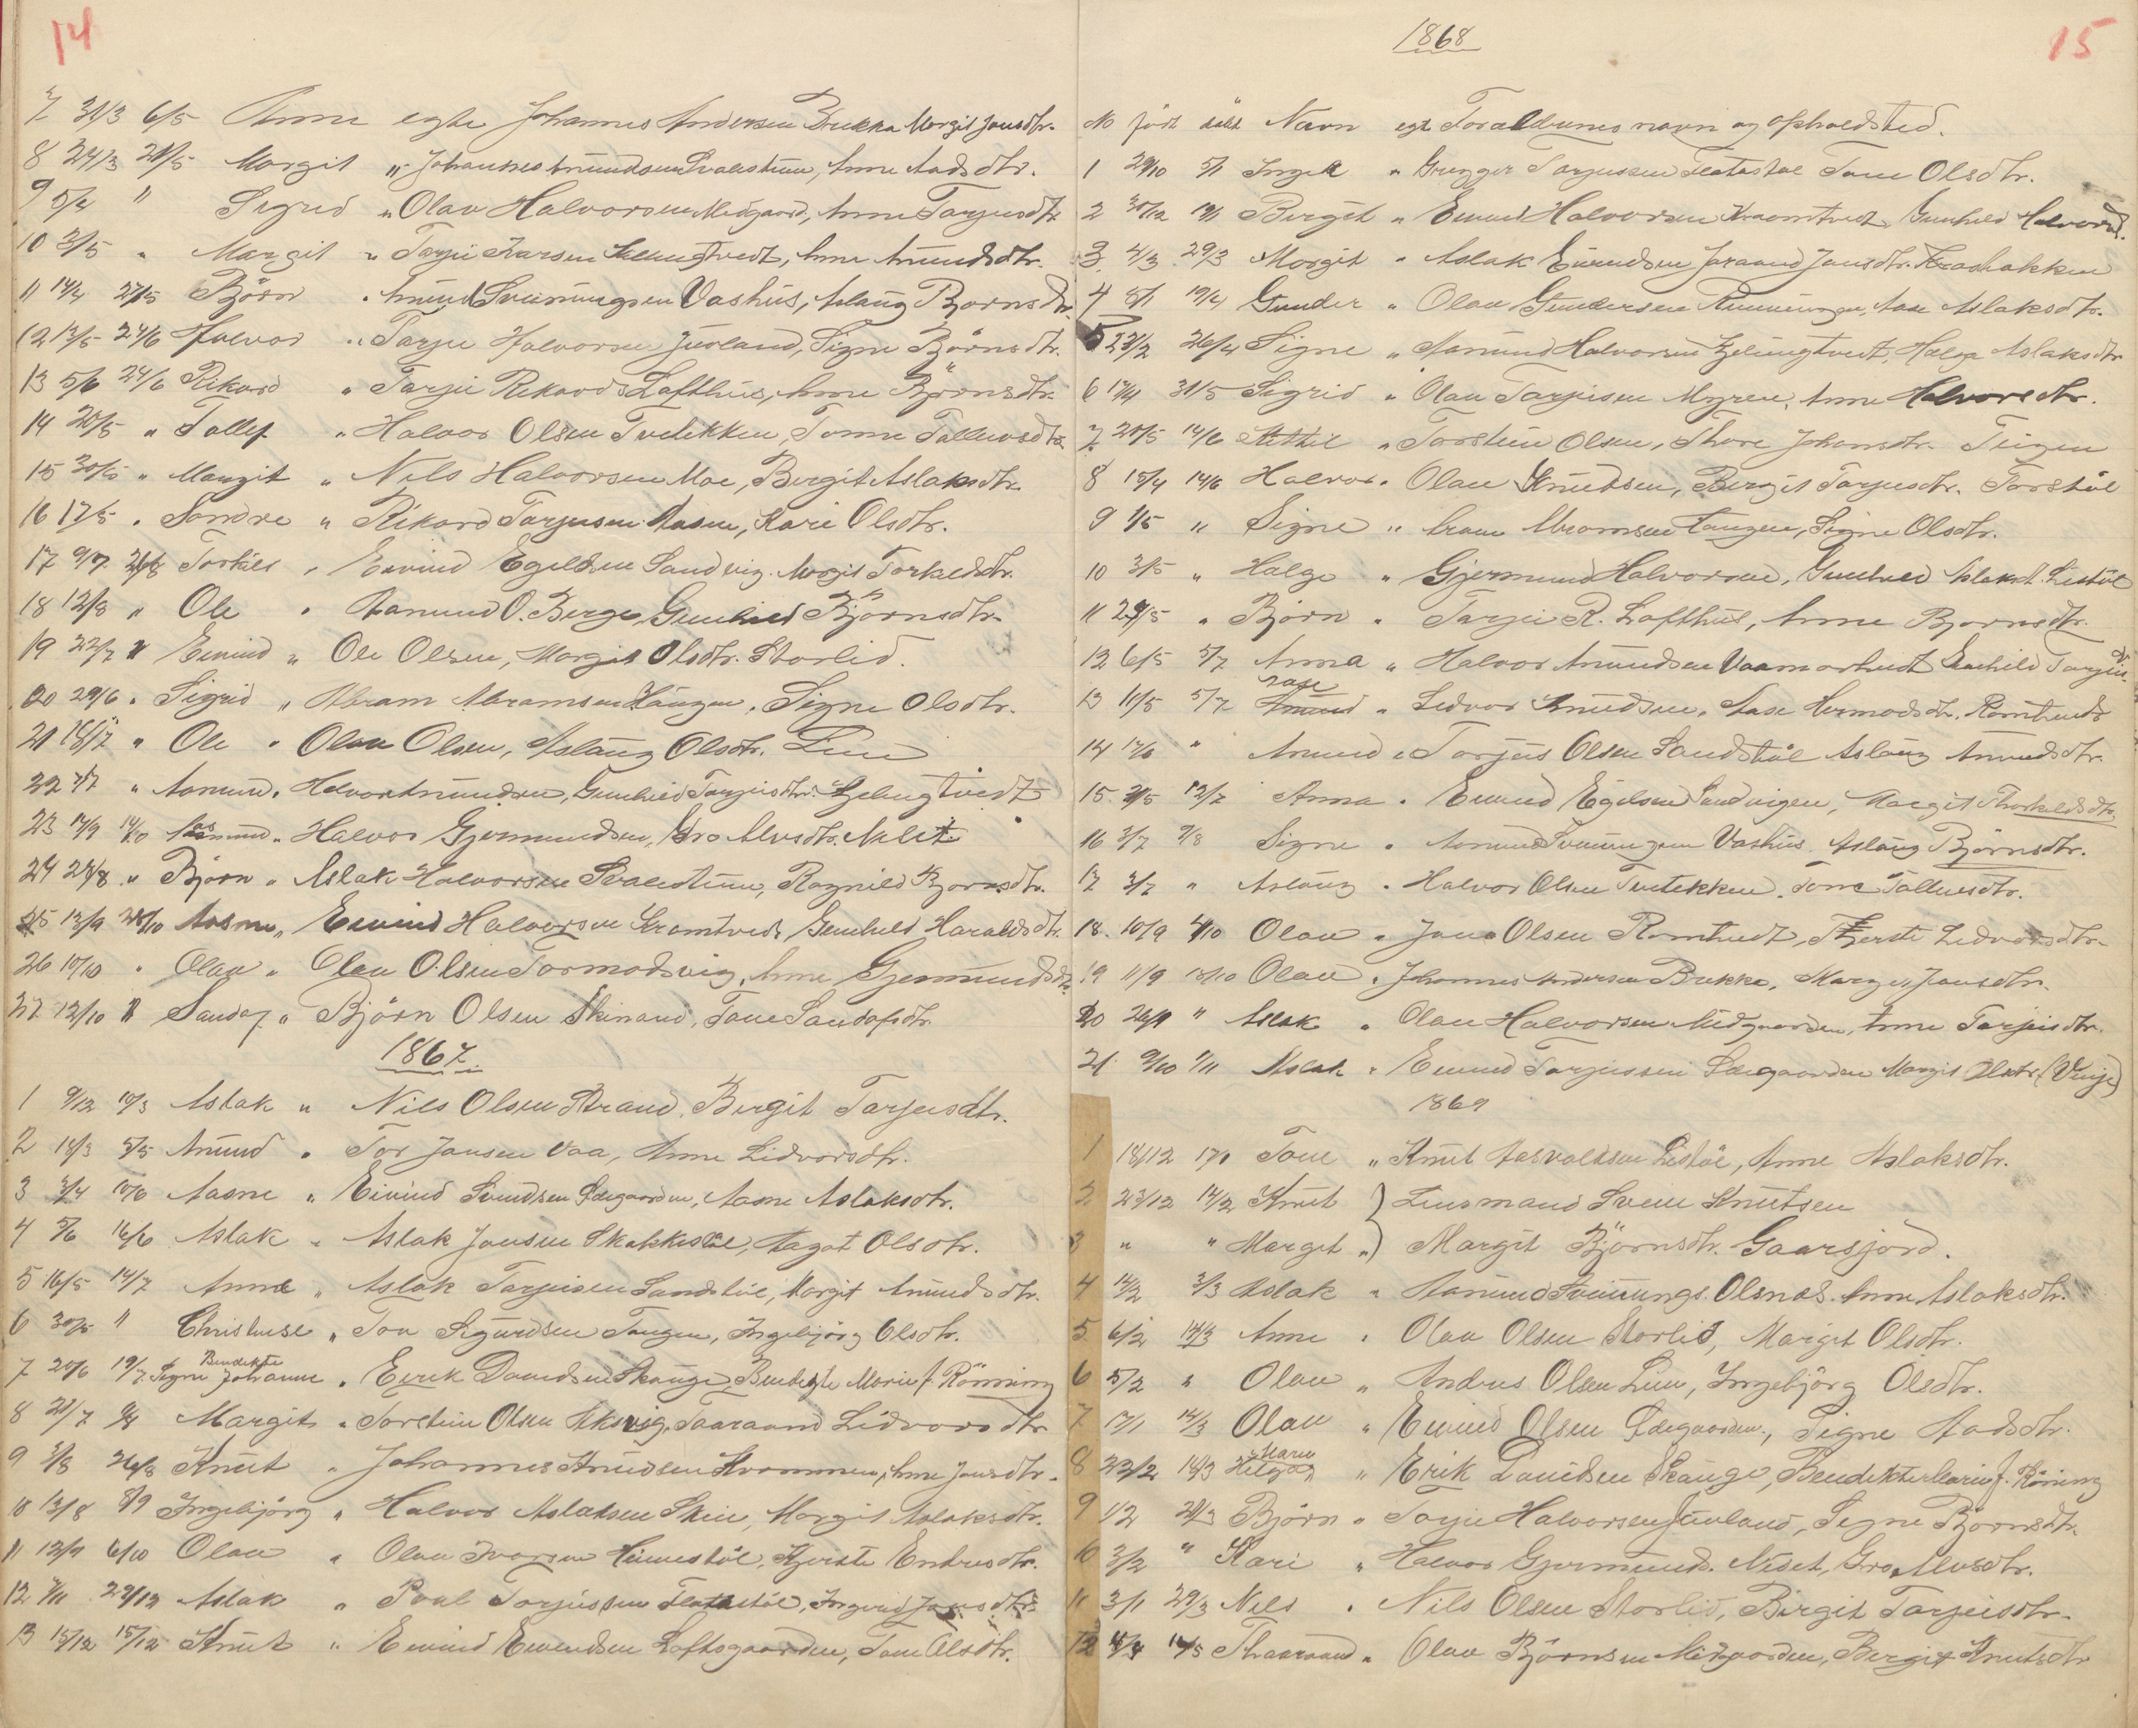 14
7 31/3 6/5 Anne egte Johannes Andersen Brekka Margit Jonsdtr.
8 24/3 21/5 Margit " Johannes Amundsen Svalestuen, Anne Aadsdtr.
9 5/4 " Sigrid " Olav Halvorsen Midgaard, Anne Tarjeisdtr
10 3/5 " Margit " Tarjei Ivarsen Selengtvedt, Anne Amundsdtr.
11 14/4 27/5 Björn " Amund Sveinungsen Vashus, Aslaug Bjornsdtr.
12 13/5 24/6 Halvor " Tarjei Halvorsen Juvland, Signe Björnsdtr.
13 5/6 24/6 Rikard " Tarjei Rikards Lofthus, Anne Björnsdtr.
14 20/5 " Tallef " Halvor Olsen Tveitekken, Tonne Tallevsdtr
15 30/5 " Margit " Nils Halvorsen Moe, Bergit Aslaksdtr.
16 17/5 " Sondre " Rikard Tarjeisen Aasen, Kari Olsdtr.
17 9/7 26/8 Torkiel " Eivind Egilsen Sandvig. Margit Torkelsdtr.
18 12/8 " Ole " Aamund O. Berge, Gunhild Björnsdtr.
19 22/7 " Eivind " Ole Olsen, Margit Olsdtr. Storlid.
20 29/6 " Sigrid " Abram Abramsen Haugen, Signe Olsdtr.
21 18/7 " Ole " Olav Olsen, Aslaug Olsdtr. Lien
22 7/7 " Aamund " Halvor Amundsen, Gunhild Tarjeisdtr. Gjelengtvedt
23 14/9 14/10 Aasmund " Halvor Gjermundsen, Gro Alvsdtr. Neset
24 27/8 " Björn " Aslak Halvorsen Svalestuen, Ragnild Bjornsdtr.
25 13/9 28/10 Aasne " Eivind Halvorsen Kramtvedt Gunhild Haraldsdtr.
26 10/10 " Olav " Olav Olsen Tormodsvig, Anne Gjermundsdtr.
27 12/10 " Sandaf " Björn Olsen Skinand, Tone Sandafsdtr.
1867.
1 9/12 10/3 Aslak " Nils Olsen Strand, Birgit Tarjeisdtr.
2 18/3 5/5 Amund " Tor Jonsen Vaa, Anne Lidvorsdtr.
3 3/4 10/6 Aasne " Eivind Svendsen Ødegaarden, Aasne Aslaksdtr.
4 5/6 16/6 Aslak " Aslak Jonsen Skakkestöl, Aagot Olsdtr.
5 16/5 14/7 Anne " Aslak Tarjeisen Sandstöl, Margit Amundsdtr.
6 30/5 " Christense " Tov Sigurdsen Tangen, Ingebjörg Olsdtr.
7 20/6 19/7 Signe Bendikte Johanne " Eerik Danielsen Skauge, Bendigte Marie f. Rönning
8 21/7 9/8 Margit " Torstein Olsen Aksvig, Taaraand Lidvorsdtr
9 3/8 26/8 Knut " Johannes Knudsen Kvammen, Anne Jonsdtr.
10 13/8 8/9 Ingebjörg " Halvor Aslaksen Skeie, Margit Aslaksdtr.
11 12/9 6/10 Olav " Olav Ivarsen Himestöl, Kjersti Endresdtr.
12 7/11 29/12 Aslak " Poul Tarjeissen Flatestöl, Ingerid Jonsdtr
13 15/12 15/12 Knut " Eivind Eivendsen Loftsgaarden, Tone Olsdtr.
15
1868
No født döbt Navn egt Foraldrenes navn og opholdsted.
1 29/10 5/1 Ingeb " Gregger Tarjeissen Flatestöl Tone Olsdtr.
2 30/12 19/1 Birgit " Eivind Halvorsen Kraomtvedt, Gunhild Halvorsd.
3. 4/3 29/3 Margit " Aslak Eivindsen Joraand Jonsdtr. Krashakken
4 8/1 19/4 Gunder " Olav Gundersen Rinningen, Aase Aslaksdtr.
5 23/2 26/4 Signe " Aamund Halvorsen Gjelengtvedt, Helge Aslaksdtr
6 17/4 31/5 Sigrid " Olav Tarjeisen Myren, Anne Halvorsdtr.
7 20/5 14/6 Kittil " Torstein Olsen, Thore Johansdtr. Teigen
8 15/4 14/6 Halvor " Olav Knudsen, Bergit Tarjeisdtr. Torstöl
9 1/5 " Signe " Avram Abramsen Haugen, Signe Olsdtr.
10 3/5 " Helge " Gjermund Halvorsen, Gunhild Aslaksd. Listöl
11 29/5 " Björn " Tarjei R. Lofthus, Anne Bjornsdtr.
12 6/5 5/7 Anna " Halvor Amundsen Vaamartvedt Gunhild Tarjeisdtr.
13 11/5 5/7 Aase " Lidvor Knudsen, Aase Hermodsdtr. Romtvedt
14 14/6 " Amund " Torjeis Olsen Sandstöl Aslaug Amundsdtr.
15. 7/5 12/7 Anna " Eivind Egilsen Sandvigen, Margit Thorkeldsdtr.
16 3/7 9/8 Signe " Aamund Sveinungsen Vashus, Aslaug Björnsdtr.
17 3/7 " Aslaug " Halvor Olsen Tveitekken. Tone Tallevsdtr.
18. 10/9 4/10 Olav " Jon Olsen Romtvedt, Kjersti Lidvorsdtr.
19 11/9 18/10 Olav " Johannes Andersen Brekke, Margit Jonsdtr.
20 26/9 " Aslak " Olav Halvorsen Midgaarden, Anne Tarjeisdtr.
21. 9/10 1/11 Aslak " Eivind Tarjeissen Ødegaarden Margit Olsdtr. (Vinje)
1869
1 18/12 17/1 Tone " Knut Aasvaldsen Listöl, Anne Aslaksdtr.
2 23/12 14/2 Knut } Lensmand Svein Knutsen
3 " " Margit " } Margit Björnsdtr. Gaarsjord.
4 14/2 3/3 Aslak " Aamund Sveinungs. Olsnes. Anne Aslaksdtr.
5 6/2 14/3 Anne " Olav Olsen Storlid, Margit Olsdtr.
6 5/2 " Olav " Andres Olsen Lien, Ingebjörg Olsdtr.
7 17/1 14/3 Olav " Eivind Olsen Ødegaarden, Signe Aadsdtr.
8 23/2 18/3 Helga Karin " Erik Danielsen Skauge, Bendikte Marie f. Röning
9 1/2 21/3 Björn " Tarjei Halvorsen Juvland, Signe Björnsdtr.
10 3/2 " Kari " Halvor Gjermunds. Neset, Gro Alvsdtr.
11 3/1 29/3 Nils " Nils Olsen Storlid, Birgit Tarjeisdtr.
12 4/4 16/5 Thaaraand " Olav Björnsen Midgaarden, Bergit Knutsdtr